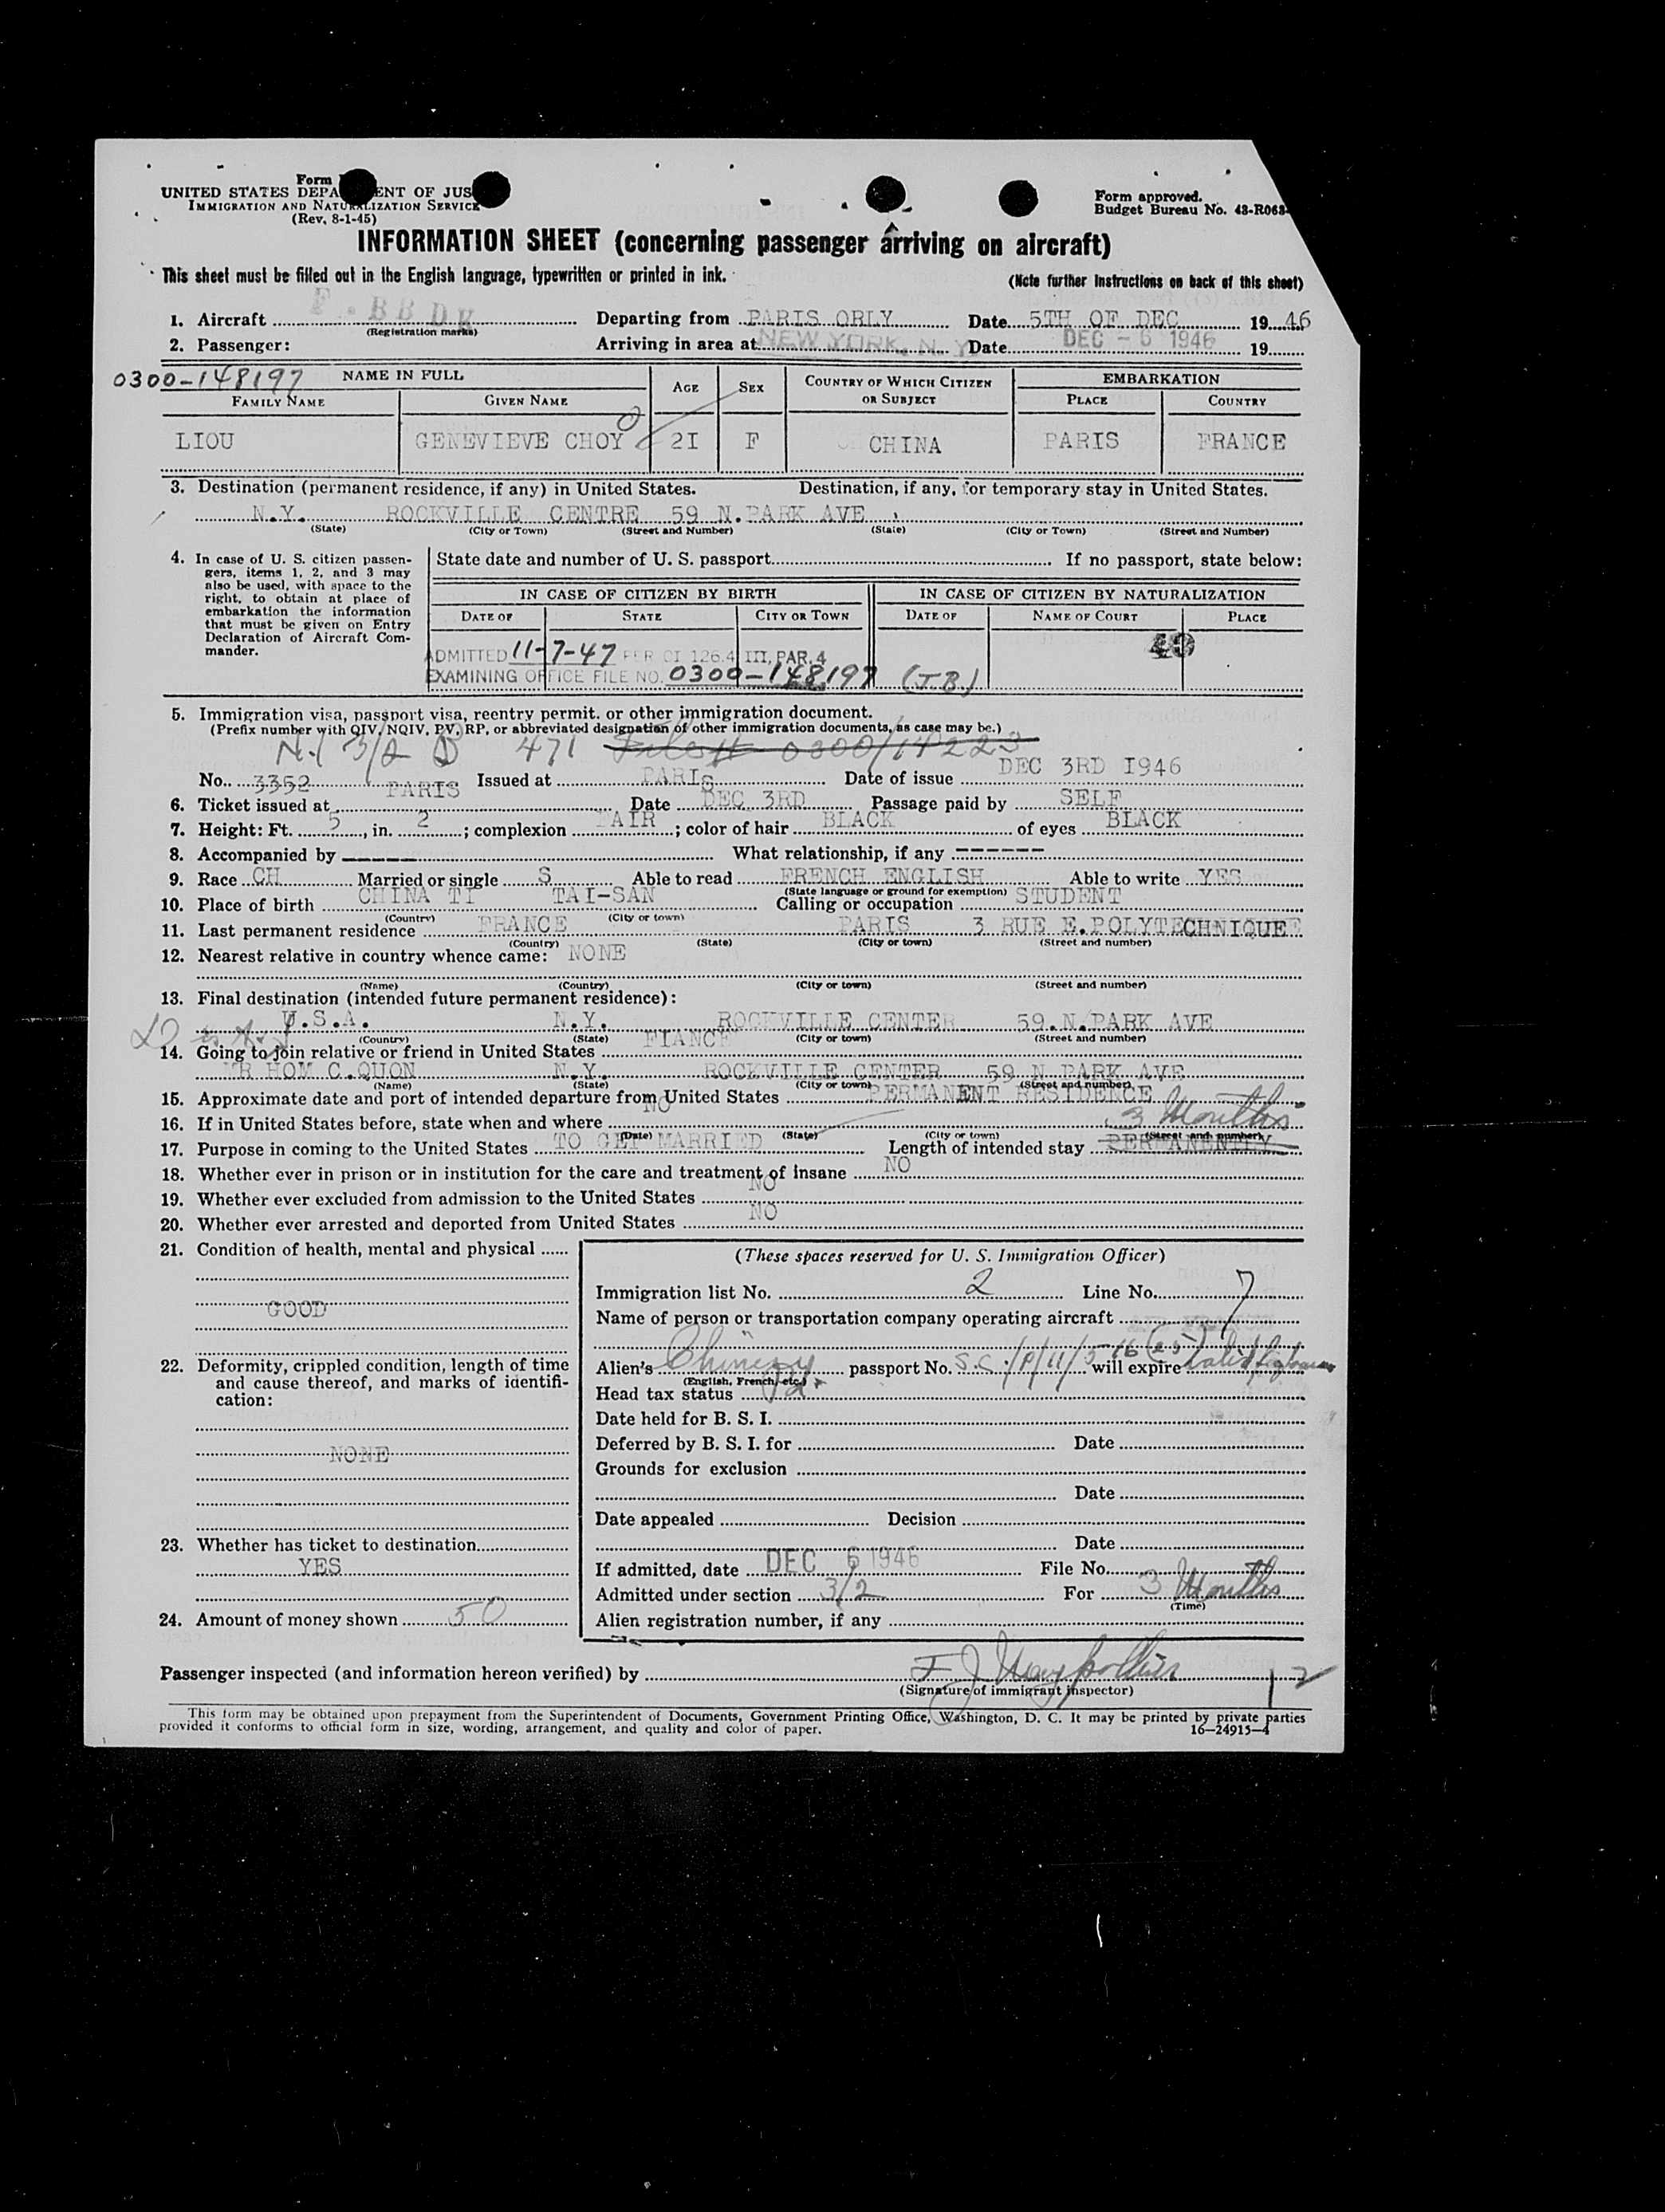 Form
UNITED STATES DEPA ENT OF JUS
IMMIGRATION AND NATURALIZATION SERVICE
(Rev. 8-1-45)
Form approved.
Budget Bureau No. 43-R063-
INFORMATION SHEET (concerning passenger arriving on aircraft)
This sheet must be filled out in the English language, typewritten or printed in ink.
(Note further instructions on back of this sheet)
1. Aircraft F.BBDK Departing from PARIS ORLY Date 5TH OF DEC 19 46
(Registration marks)
2. Passenger: Arriving in area at NEW YORK, N. Y. Date DEC - 6 1946 19
0300-148197 NAME IN FULL AGE SEX COUNTRY OF WHICH CITIZEN OR SUBJECT EMBARKATION
FAMILY NAME GIVEN NAME PLACE COUNTRY
LIOU GENEVIEVE CHOY 2I F CHINA PARIS FRANCE
3. Destination (permanent residence, if any) in United States. Destination, if any, for temporary stay in United States.
N.Y. ROCKVILLE CENTRE 59 N.PARK AVE
(State) (City or Town) (Street and Number) (State) (City or Town) (Street and Number)
4. In case of U. S. citizen passengers, items 1, 2, and 3 may also be used, with space to the right, to obtain at place of embarkation the information that must be given on Entry Declaration of Aircraft Commander.
State date and number of U. S. passport If no passport, state below:
IN CASE OF CITIZEN BY BIRTH IN CASE OF CITIZEN BY NATURALIZATION
DATE OF STATE CITY OR TOWN DATE OF NAME OF COURT PLACE
43
ADMITTED 11-7-47 PER OI 126.4 III, PAR. 4
EXAMINING OFFICE FILE NO. 0300-148197 (J.B.)
5. Immigration visa, passport visa, reentry permit, or other immigration document.
(Prefix number with QIV, NQIV, PV, RP, or abbreviated designation of other immigration documents, as case may be.)
3/2 471 File # 0300/14223
No. 3352 Issued at PARIS Date of issue DEC 3RD I946
6. Ticket issued at PARIS Date DEC 3RD Passage paid by SELF
7. Height: Ft. 5, in. 2; complexion FAIR; color of hair BLACK of eyes BLACK
8. Accompanied by ------ What relationship, if any ------
9. Race CH Married or single S Able to read FRENCH ENGLISH Able to write YES
(State language or ground for exemption)
10. Place of birth CHINA TI TAI-SAN Calling or occupation STUDENT
(Country) (City or town)
11. Last permanent residence FRANCE PARIS 3 RUE E.POLYTECHNIQUE
(Country) (State) (City or town) (Street and number)
12. Nearest relative in country whence came: NONE
(Name) (Country) (City or town) (Street and number)
13. Final destination (intended future permanent residence):
U.S.A. N.Y. ROCKVILLE CENTER 59.N.PARK AVE
(Country) (State) (City or town) (Street and number)
14. Going to join relative or friend in United States FIANCE
MR HOM C.QUON N.Y. ROCKVILLE CENTER 59 N PARK AVE
(Name) (State) (City or town) (Street and number)
15. Approximate date and port of intended departure from United States PERMANENT RESIDENCE
16. If in United States before, state when and where NO
(Date) (State) (City or town) (Street and number)
3 Months
17. Purpose in coming to the United States TO GET MARRIED Length of intended stay PERMANENTLY
18. Whether ever in prison or in institution for the care and treatment of insane NO
19. Whether ever excluded from admission to the United States NO
20. Whether ever arrested and deported from United States NO
21. Condition of health, mental and physical
GOOD
22. Deformity, crippled condition, length of time and cause thereof, and marks of identification:
NONE
23. Whether has ticket to destination
YES
24. Amount of money shown 50
(These spaces reserved for U. S. Immigration Officer)
Immigration list No. 2 Line No. 7
Name of person or transportation company operating aircraft
Alien's Chinese passport No. will expire
(English, French, etc.)
Head tax status
Date held for B. S. I.
Deferred by B. S. I. for Date
Grounds for exclusion
Date
Date appealed Decision
Date
If admitted, date DEC 6 1946 File No.
Admitted under section 3/2 For 3 Months
(Time)
Alien registration number, if any
Passenger inspected (and information hereon verified) by
(Signature of immigrant inspector)
12
This form may be obtained upon prepayment from the Superintendent of Documents, Government Printing Office, Washington, D. C. It may be printed by private parties
provided it conforms to official form in size, wording, arrangement, and quality and color of paper.
16—24915-4